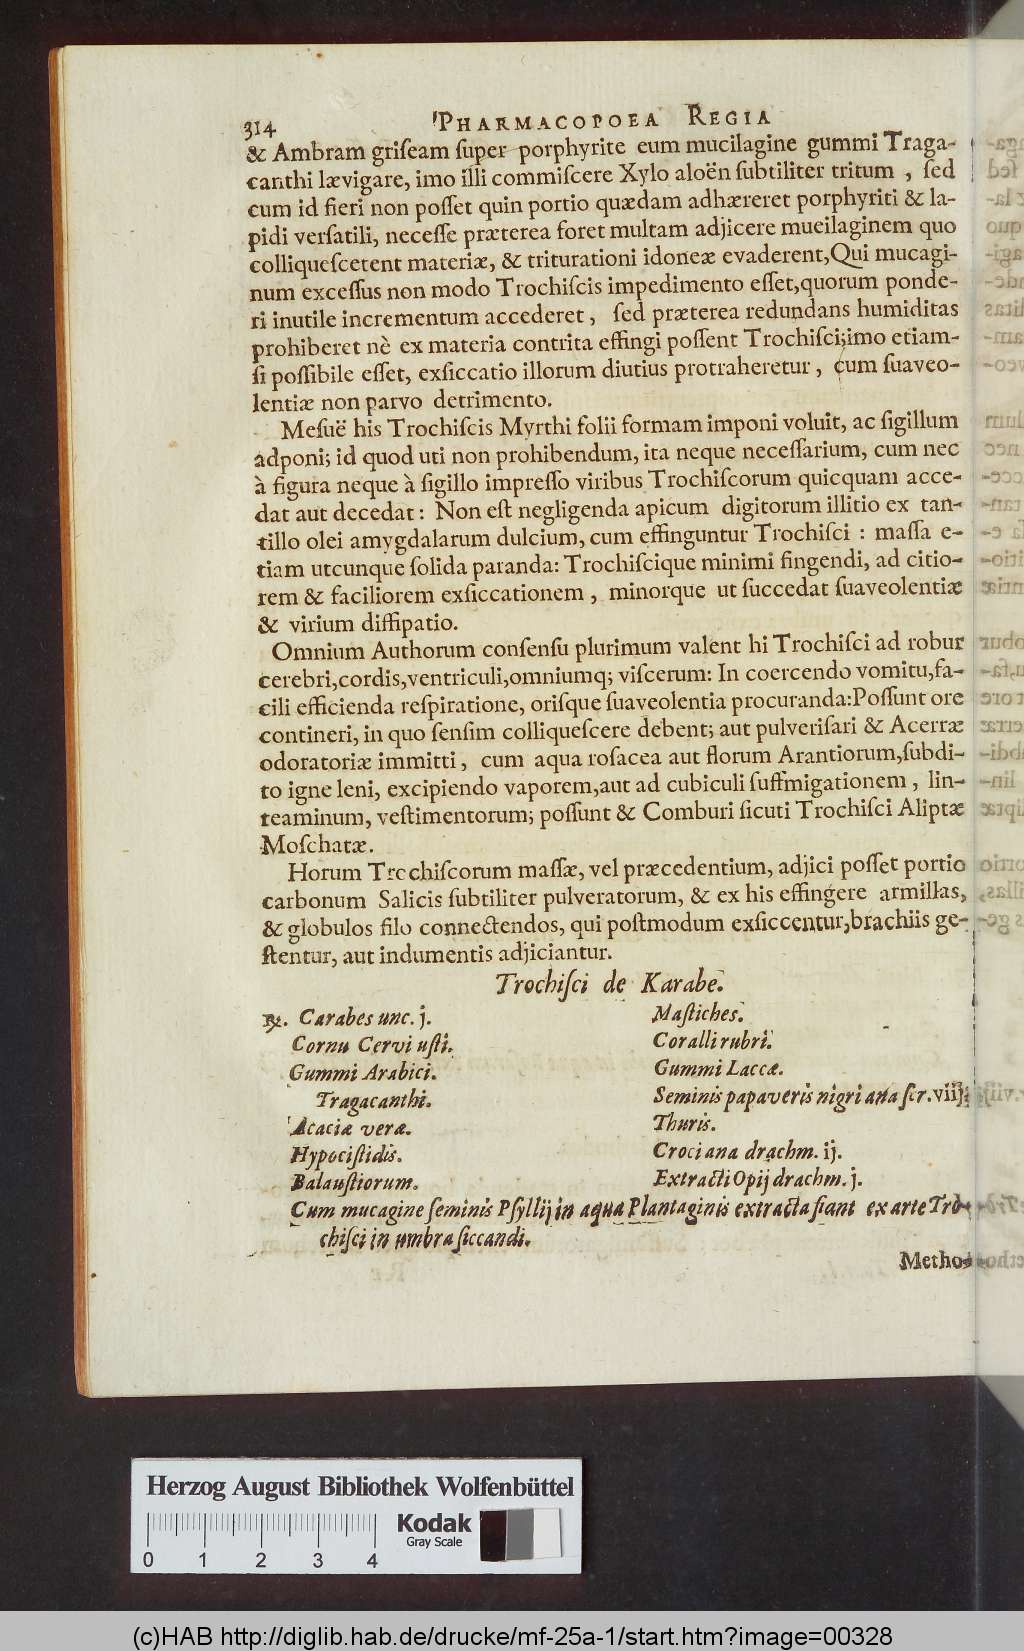 314 PHARMACOPOEA REGIA
& Ambram griſeam ſuper porphyrite eum mucilagine gummi Traga-
canthi lævigare, imo illi commiſcere Xylo aloën ſubtiliter tritum, ſed
cum id fieri non poſſet quin portio quædam adhæreret porphyriti & la-
pidi verſatili, neceſſe præterea foret multam adjicere mueilaginem quo
colliqueſcetent materiæ, & triturationi idoneæ evaderent, Qui mucagi-
num exceſſus non modo Trochiſcis impedimento eſſet, quorum ponde-
ri inutile incrementum accederet, ſed præterea redundans humiditas
prohiberet nè ex materia contrita effingi poſſent Trochiſci; imo etiam-
ſi poſſibile eſſet, exſiccatio illorum diutius protraheretur, cum ſuaveo-
lentiæ non parvo detrimento.
Meſuë his Trochiſcis Myrthi folii formam imponi voluit, ac ſigillum
adponi; id quod uti non prohibendum, ita neque neceſſarium, cum nec
à figura neque à ſigillo impreſſo viribus Trochiſcorum quicquam acce-
dat aut decedat: Non eſt negligenda apicum digitorum illitio ex tan-
tillo olei amygdalarum dulcium, cum effinguntur Trochiſci: maſſa e-
tiam utcunque ſolida paranda: Trochiſcique minimi fingendi, ad citio-
rem & faciliorem exſiccationem, minorque ut ſuccedat ſuaveolentiæ
& virium diſſipatio.
Omnium Authorum conſenſu plurimum valent hi Trochiſci ad robur
cerebri, cordis, ventriculi, omniumq; viſcerum: In coercendo vomitu, fa-
cili efficienda reſpiratione, oriſque ſuaveolentia procuranda: Poſſunt ore
contineri, in quo ſenſim colliqueſcere debent; aut pulveriſari & Acerræ
odoratoriæ immitti, cum aqua roſacea aut florum Arantiorum, ſubdi-
to igne leni, excipiendo vaporem, aut ad cubiculi ſuffmigationem, lin-
teaminum, veſtimentorum; poſſunt & Comburi ſicuti Trochiſci Aliptæ
Moſchatæ.
Horum Trochiſcorum maſſæ, vel præcedentium, adjici poſſet portio
carbonum Salicis ſubtiliter pulveratorum, & ex his effingere armillas,
& globulos filo connectendos, qui poſtmodum exſiccentur, brachiis ge-
ſtentur, aut indumentis adjiciantur.
Trochiſci de Karabe.
℞. Carabes unc. j.
Cornu Cervi uſti.
Gummi Arabici.
Tragacanthi.
Acaciæ veræ.
Hypociſtidis.
Balauſtiorum.
Maſtiches.
Coralli rubri.
Gummi Laccæ.
Seminis papaveris nigri ana ſcr. viij.
Thuris.
Croci ana drachm. ij.
Extracti Opij drachm. j.
Cum mucagine ſeminis Pſyllij in aqua Plantaginis extracta fiant ex arte Tro-
chiſci in umbra ſiccandi.
Metho-
Herzog August Bibliothek Wolfenbüttel
Kodak
Gray Scale
0 1 2 3 4
(c)HAB http://diglib.hab.de/drucke/mf-25a-1/start.htm?image=00328